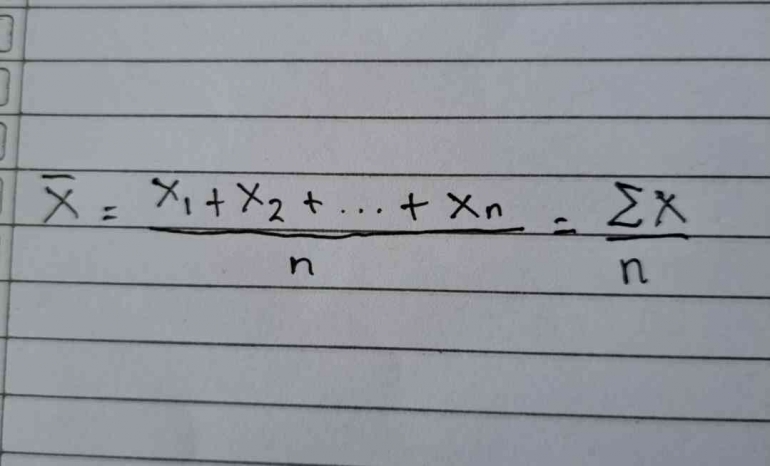 x̄ = (x₁ + x₂ + ... + xₙ)/n = Σx/n